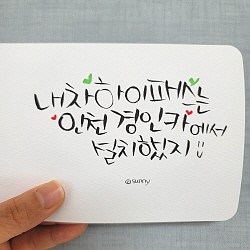 내차하이패스는
인천 경인카에서
설치했지 :)
@sunny